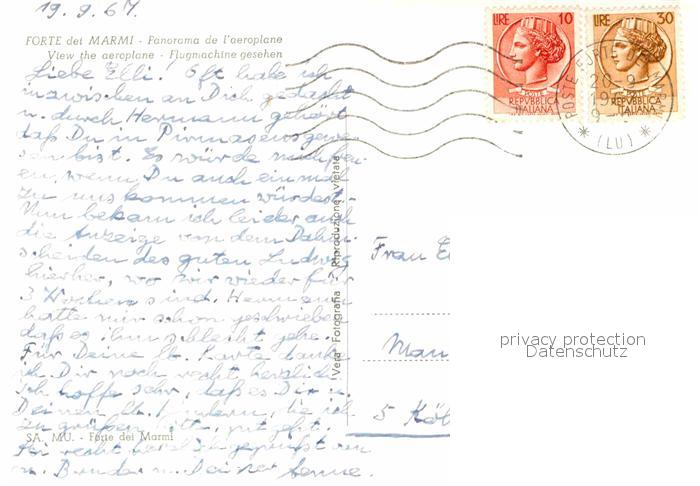 19.9.67.
FORTE dei MARMI - Panorama de l'aeroplane
View the aeroplane - Flugmachine gesehen
Liebe Elli! Oft habe ich
inzwischen an Dich gedacht
u. durch Hermann gehört
daß Du in Pirmasens gewe-
sen bist. Es würde mich freu-
en, wenn Du auch einmal
zu uns kommen würdest.
Nun bekam ich leider auch
die Anzeige von dem Dahin-
scheiden des guten Ludwig
hierher, wo wir wieder für
3 Wochen sind. Hermann
hatte mir schon geschrieben
daß es ihm schlecht gehe.
Für Deine lb. Karte danke
ich Dir noch recht herzlich.
Ich hoffe sehr, daß es Dir u.
Deinen lb. Kindern, die ich
zu grüßen bitte, gut geht.
Sei recht herzlich gegrüßt von
m. Bruder u. Deiner
SA. MU. - Forte dei Marmi
"Vera" Fotografia - Riproduzione vietata
LIRE 10
POSTE
REPVBBLICA
ITALIANA
LIRE 30
POSTE
REPVBBLICA
ITALIANA
POSTE FORTE
20-9
19
(LU)
Frau
privacy protection
Datenschutz
5 Köl